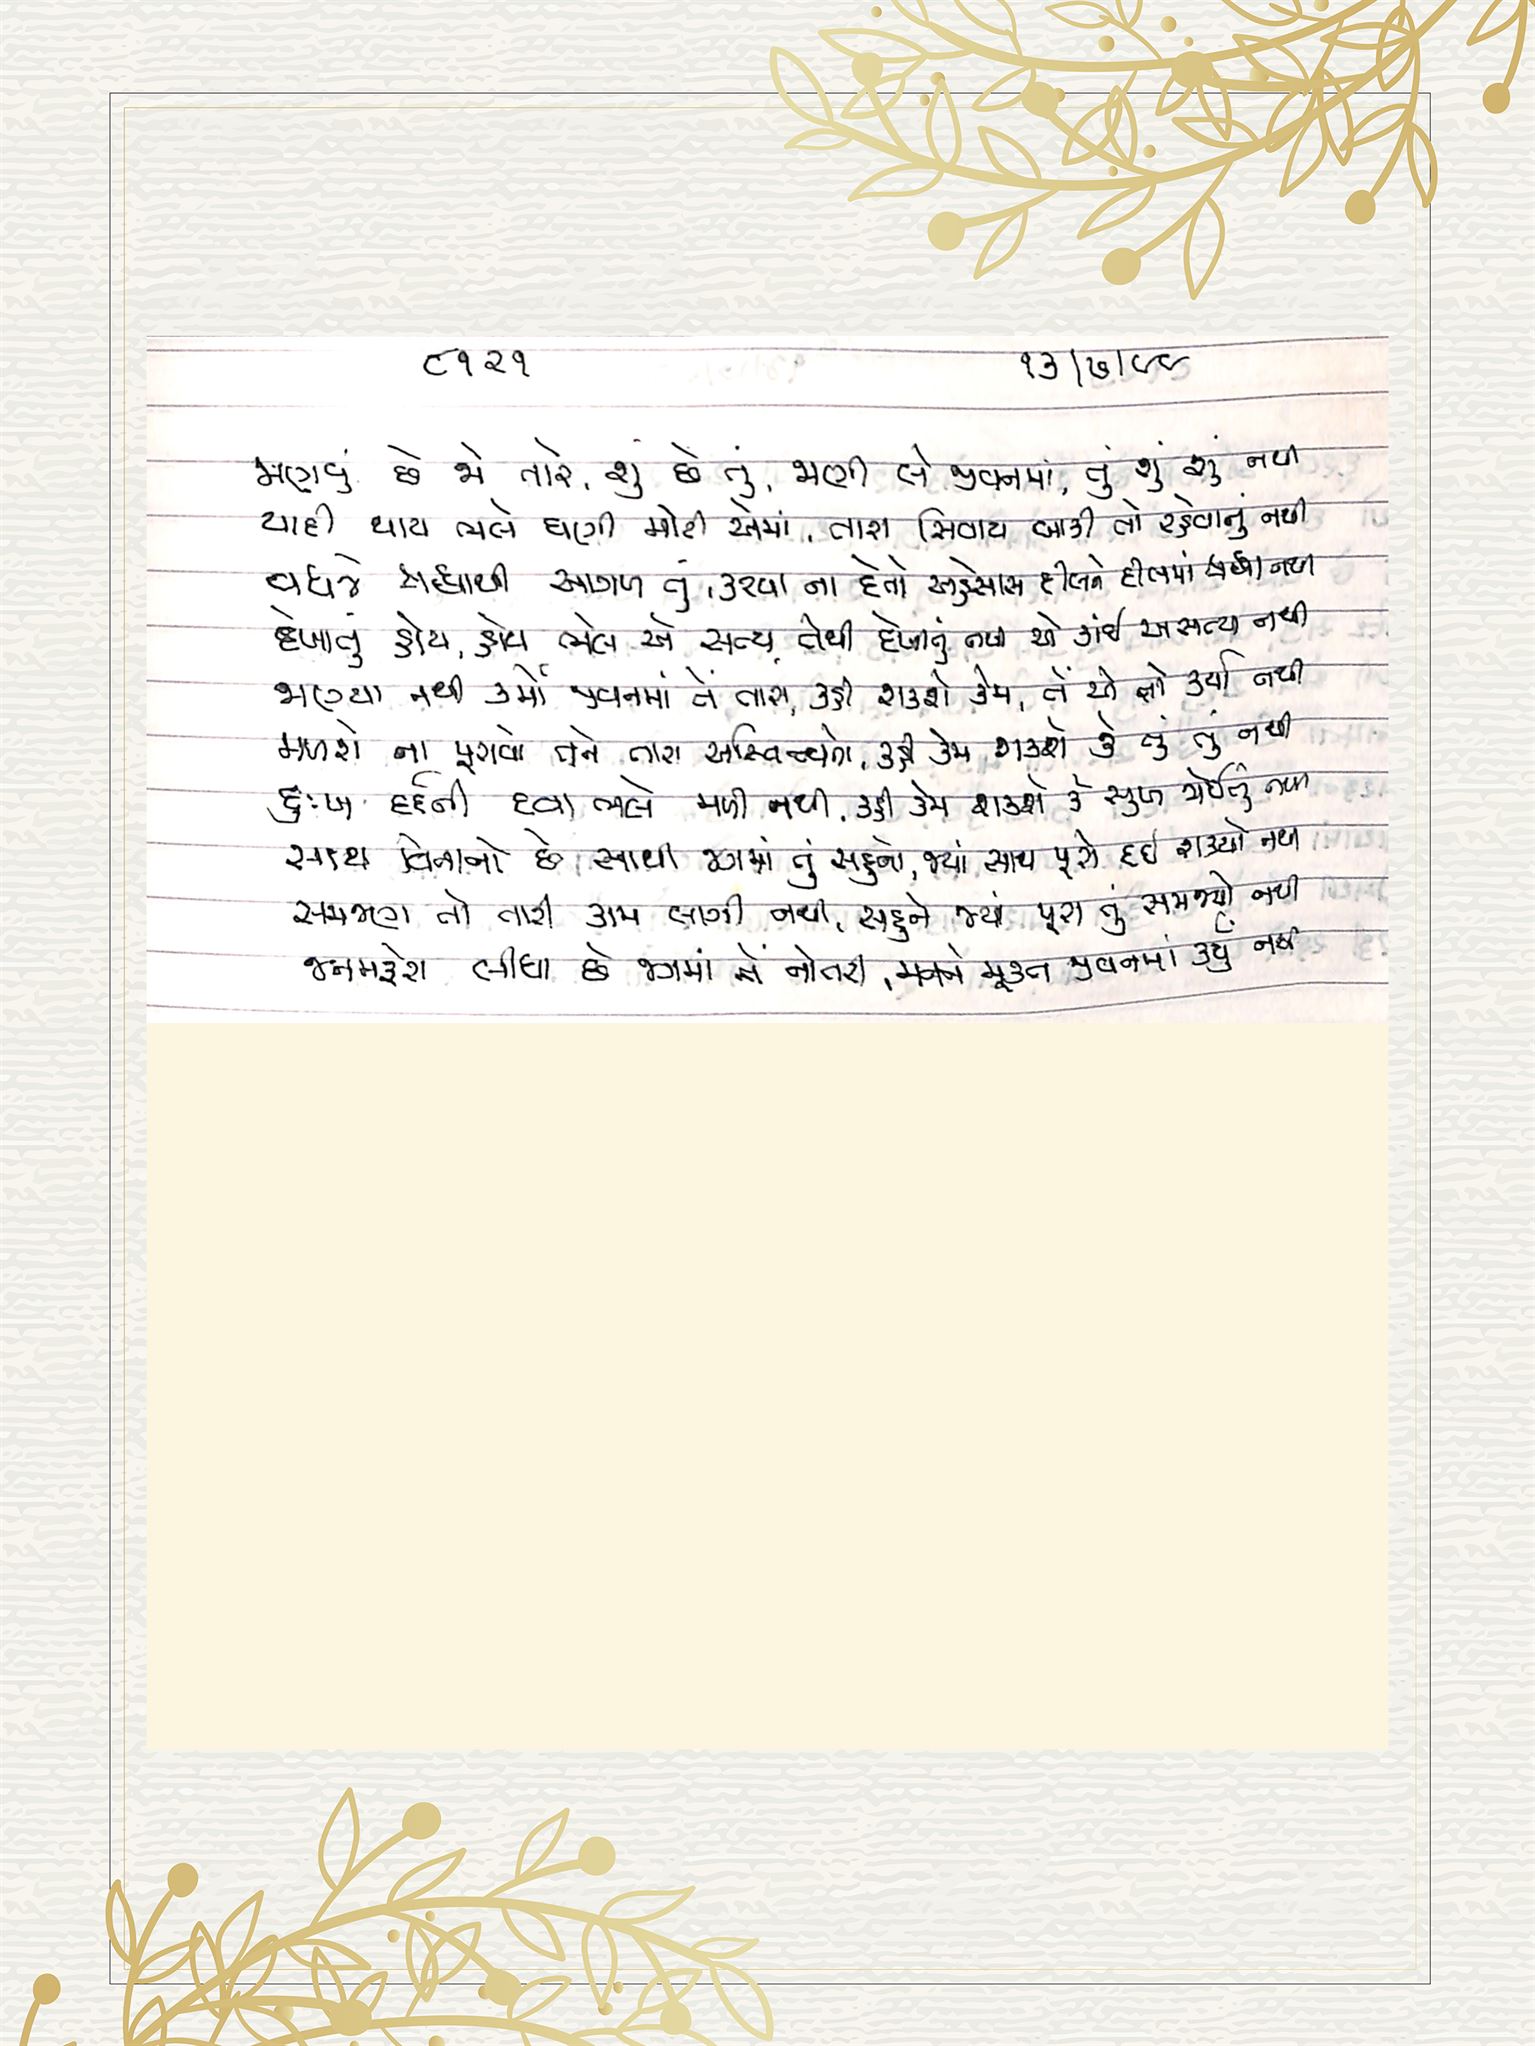 ૮૧૨૧ ૧૩/૭/૯૯
ભણવું છે જે તારે, શું છે તું, ભણી લે જીવનમાં, તું શું શું નથી
યાદી થાય ભલે ઘણી મોટી એમાં, તારા સિવાય બાકી તો રહેવાનું નથી
વધજે શ્રદ્ધાથી આગળ તું, કરવા ના દેતો અહેસાસ દીલને દીલમાં શ્રદ્ધા નથી
દેખાતું હોય, હોય ભલે એ સત્ય, તેથી દેખાતું નથી એ કાંઈ અસત્ય નથી
જાણ્યા નથી કર્મો જીવનમાં તેં તારા, કહી શકશે કેમ, તેં એ તો કર્યા નથી
મળશે ના પૂરાવો તને તારા અસ્તિત્વનો, કહી કેમ શકશે કે તું તું નથી
દુઃખ દર્દની દવા ભલે મળી નથી, કહી કેમ શકશે કે સુખ જોઈતું નથી
સાથ વિનાનો છે સાથી જગમાં તું સહુનો, જ્યાં સાથ પૂરો દઈ શક્યો નથી
સમજણ તો તારી કામ લાગી નથી, સહુને જ્યાં પૂરા તું સમજ્યો નથી
જનમફેરા લીધા છે જગમાં તેં નોતરી, મનને મૂક્ત જીવનમાં કર્યું નથી